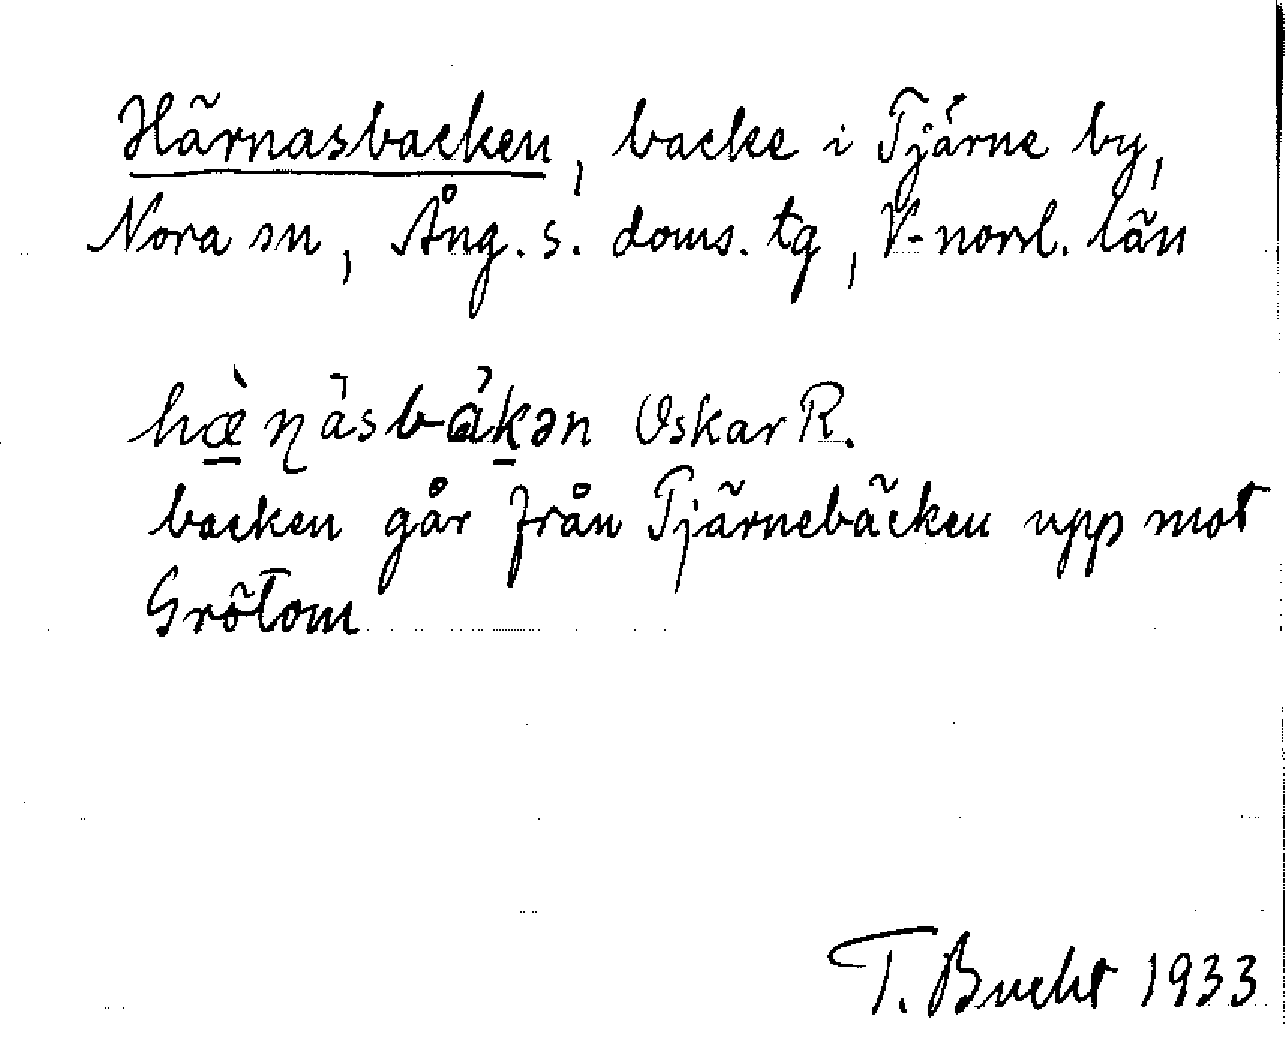 Härnasbacken, backe i Tjärne by,
Nora sn, Ång. s. doms. tg, V-norrl. län
hæ̀ɳàsbákən Oskar R.
backen går från Tjärnebäcken upp mot
Grötom
T. Bucht 1933